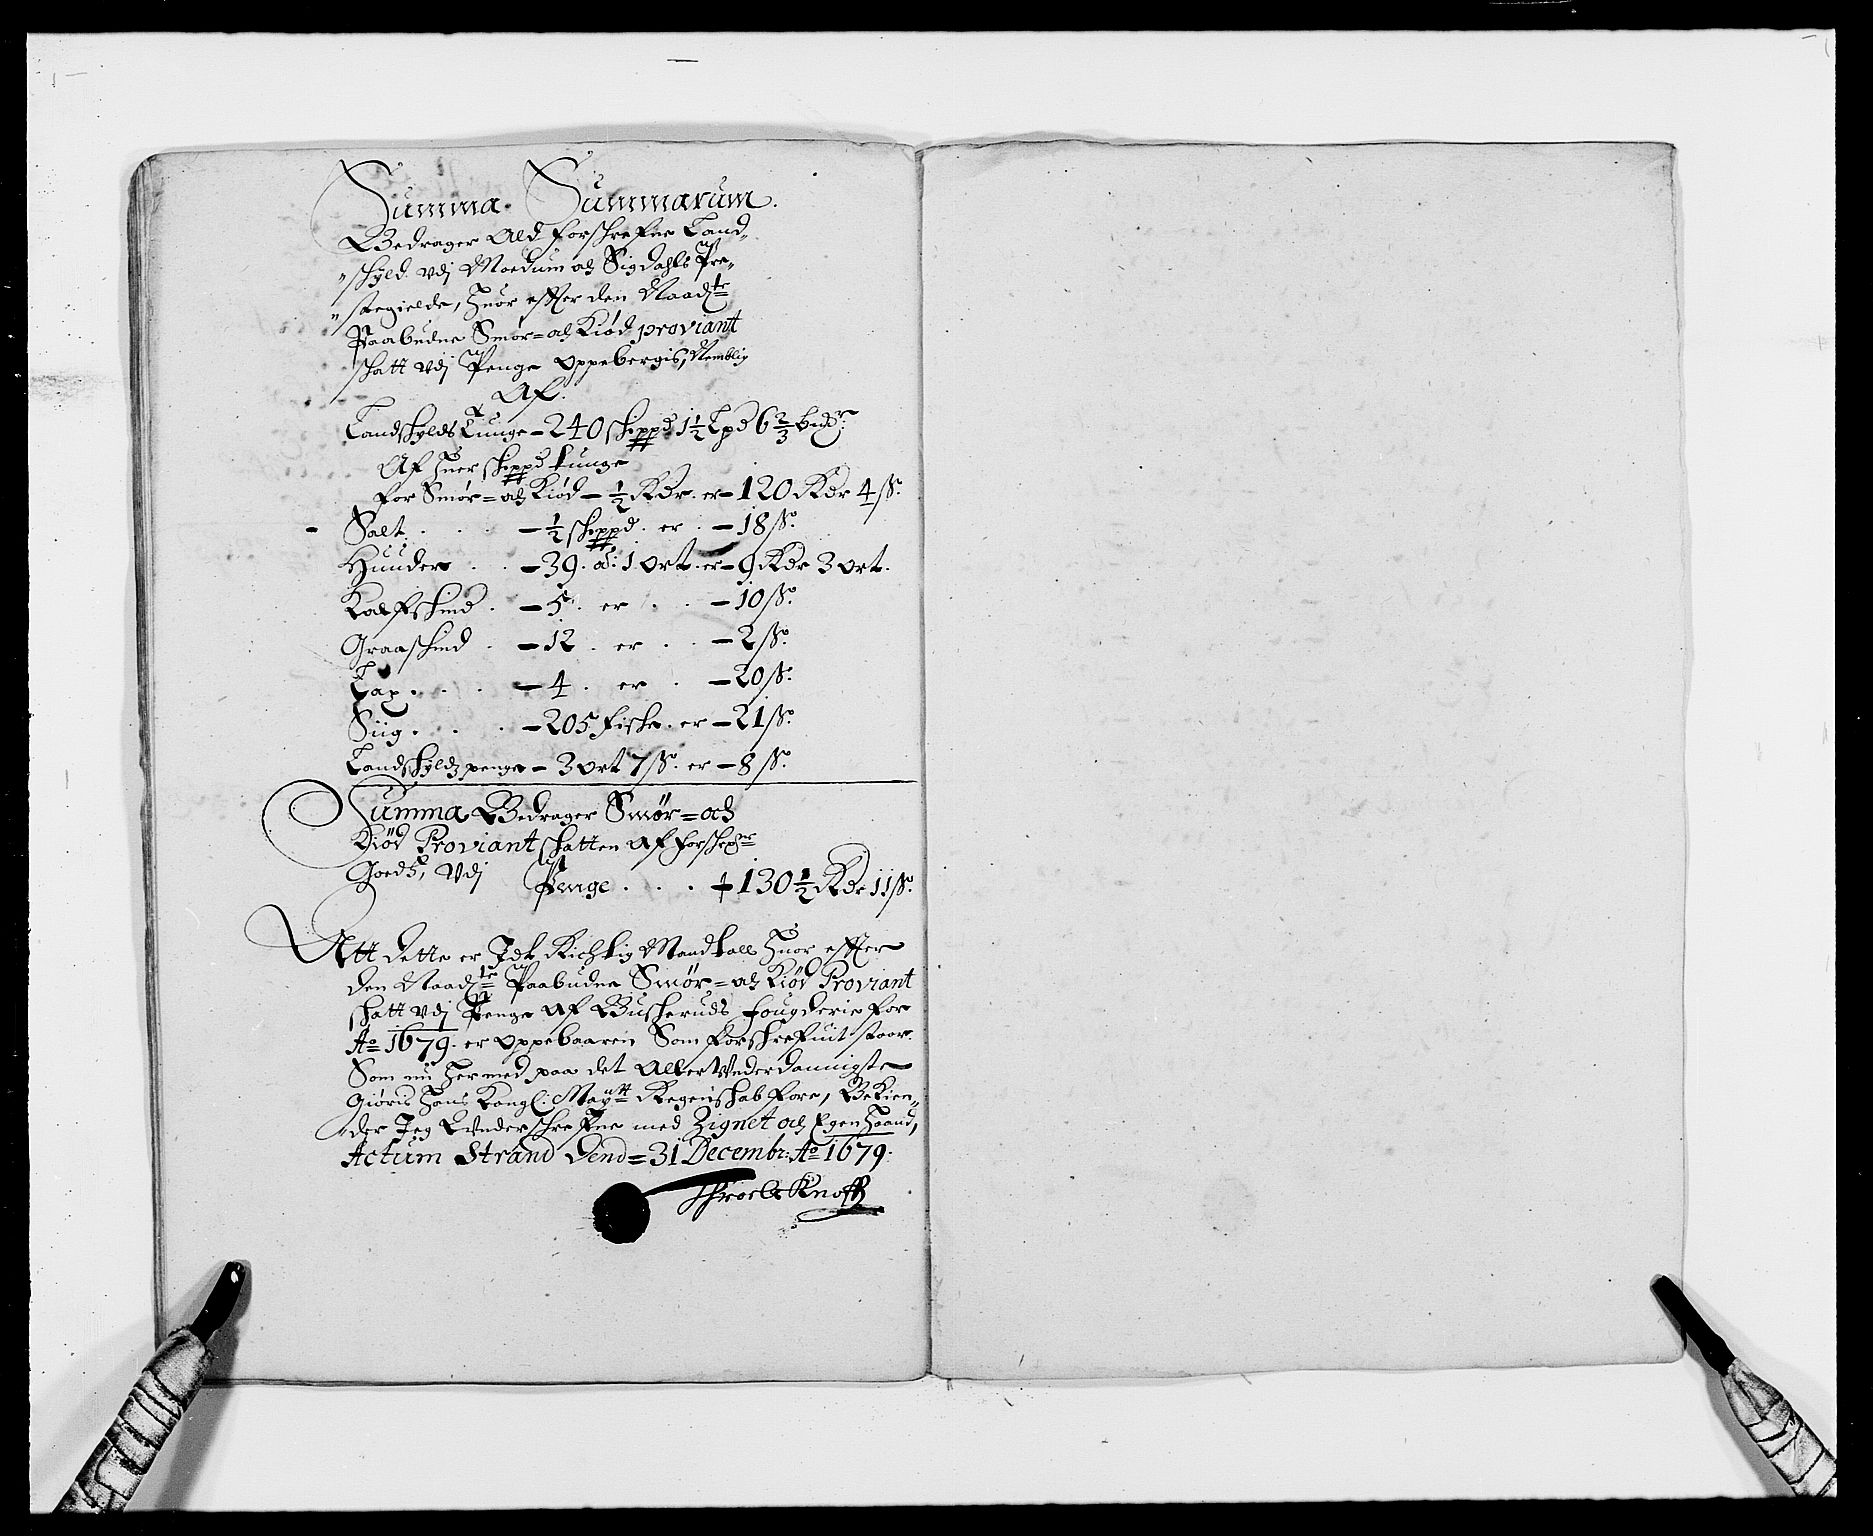 Summa. Summarum.
Bedrager Ald forschrefne Land„
„schyld. vdj Moedum och Sigdahls Pre„
„stegielde, Huor effter den Naadste
Paabudne Smør= och Kiød proviant
schatt vdj Penge Oppebergis, Nemblig
Af.
Landschylds Tunge - 240 schippd 1½ Lpd 6 2/3 bidr.
Af huer schippd tunge
for Smør= och Kiød - ½ Rdr. er - 120 Rdr 4 ß.
- Salt. . . . - ½ schippd. er - 18 ß.
Huuder . . - 39. a: 1 Ort. er - 9 Rdr 3 ort.
Kalfschind. - 5. er . . - 10 ß.
Graaschind . - 12 . er . . - 2 ß.
Lax. . . . - 4 . er . - 20 ß.
Siig. . . . - 205 fische. er - 21 ß.
Landschyldz penge - 3 ort 7 ß. er - 8 ß.
Summa Bedrager Smør= och
Kiød Proviant schatten af forschrne
Goedz, Vdj Penge . . . + 130 ½ Rdr 11 ß.
Att dette er Idt Richtig Mandtall Huor effter
den Naadste Paabudne Smør= och Kiød Proviant
schatt vdj Penge af Buscheruds fougderie for
Ao 1679. er oppebaaren Som forschrefuit staar.
Som nu hermed paa det Allervnderdanigste
giøris Hans Kongl: Maytt Regenschab fore, Bekien„
der Jeg Vnderschrefne med Zignet och Egen Haand,
Actum Strand Dend= 31 Decembr: Ao 1679.
Knoff